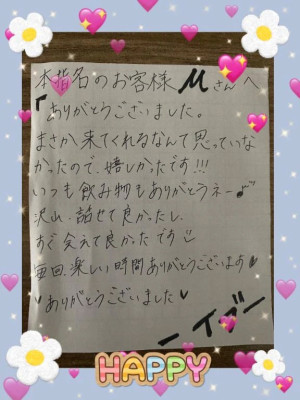 本指名のお客様 Mさんへ
「ありがとうございました。
まさか来てくれるなんて思っていな
かったので、嬉しかったです!!!
いつも飲み物もありがとうネー♪
沢山、話せて良かったし、
すぐ会えて良かったです
毎回、楽しい時間ありがとうございます
ありがとうございました
HAPPY